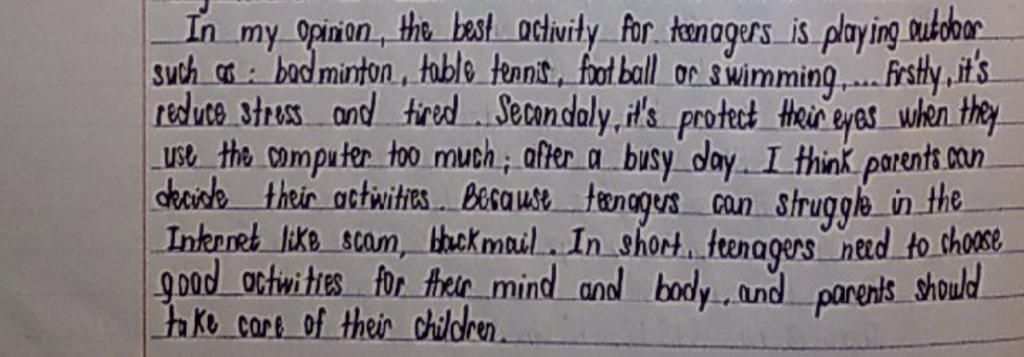 In my opinion, the best activity for teenagers is playing outdoor
such as : badminton, table tennis, football or swimming,... firstly, it's
reduce stress and tired. Secondaly, it's protect their eyes when they
use the computer too much; after a busy day. I think parents can
decide their activities. Because teenagers can struggle in the
Internet like scam, blackmail. In short, teenagers need to choose
good activities for their mind and body, and parents should
take care of their children.